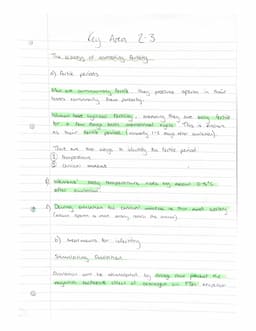 Key Area 2.3
The biology of controlling fertility
a) fertile periods
Men are continuously fertile. They produce sperm in their
testes continuously from puberty.
Women have cyclical fertility, meaning they are only fertile
for a few days each menstrual cycle. This is known
as their fertile period (normally 1-3 days after ovulation).
There are two ways to identify the fertile period
① temperature
② cervical mucus
① Womens' body temperature rises by around 0.5°C
after ovulation
② During ovulation the cervical mucus is thin and watery
(allows sperm to move easily reach the ovum).
b) treatments for infertility
Stimulating Ovulation
Ovulation can be stimulated by drugs that prevent the
negative feedback effect of oestrogen on FSH